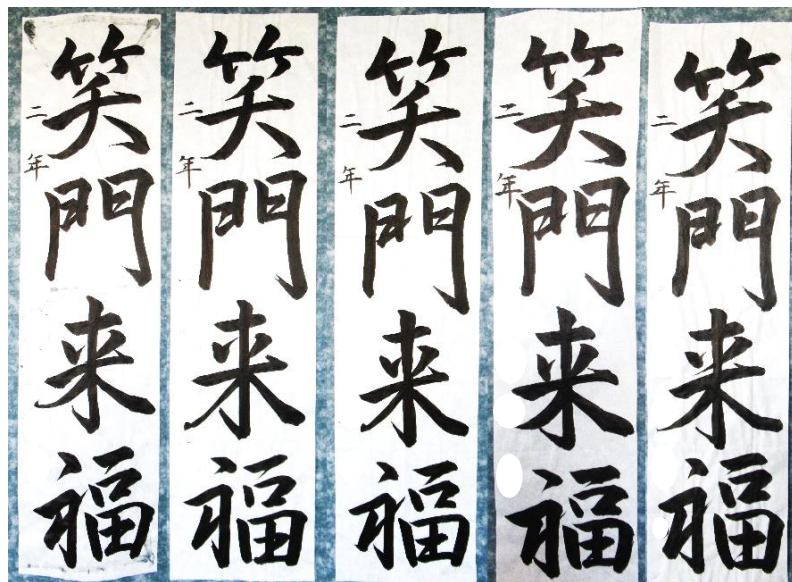 笑門来福
二年
笑門来福
二年
笑門来福
二年
笑門来福
二年
笑門来福
二年